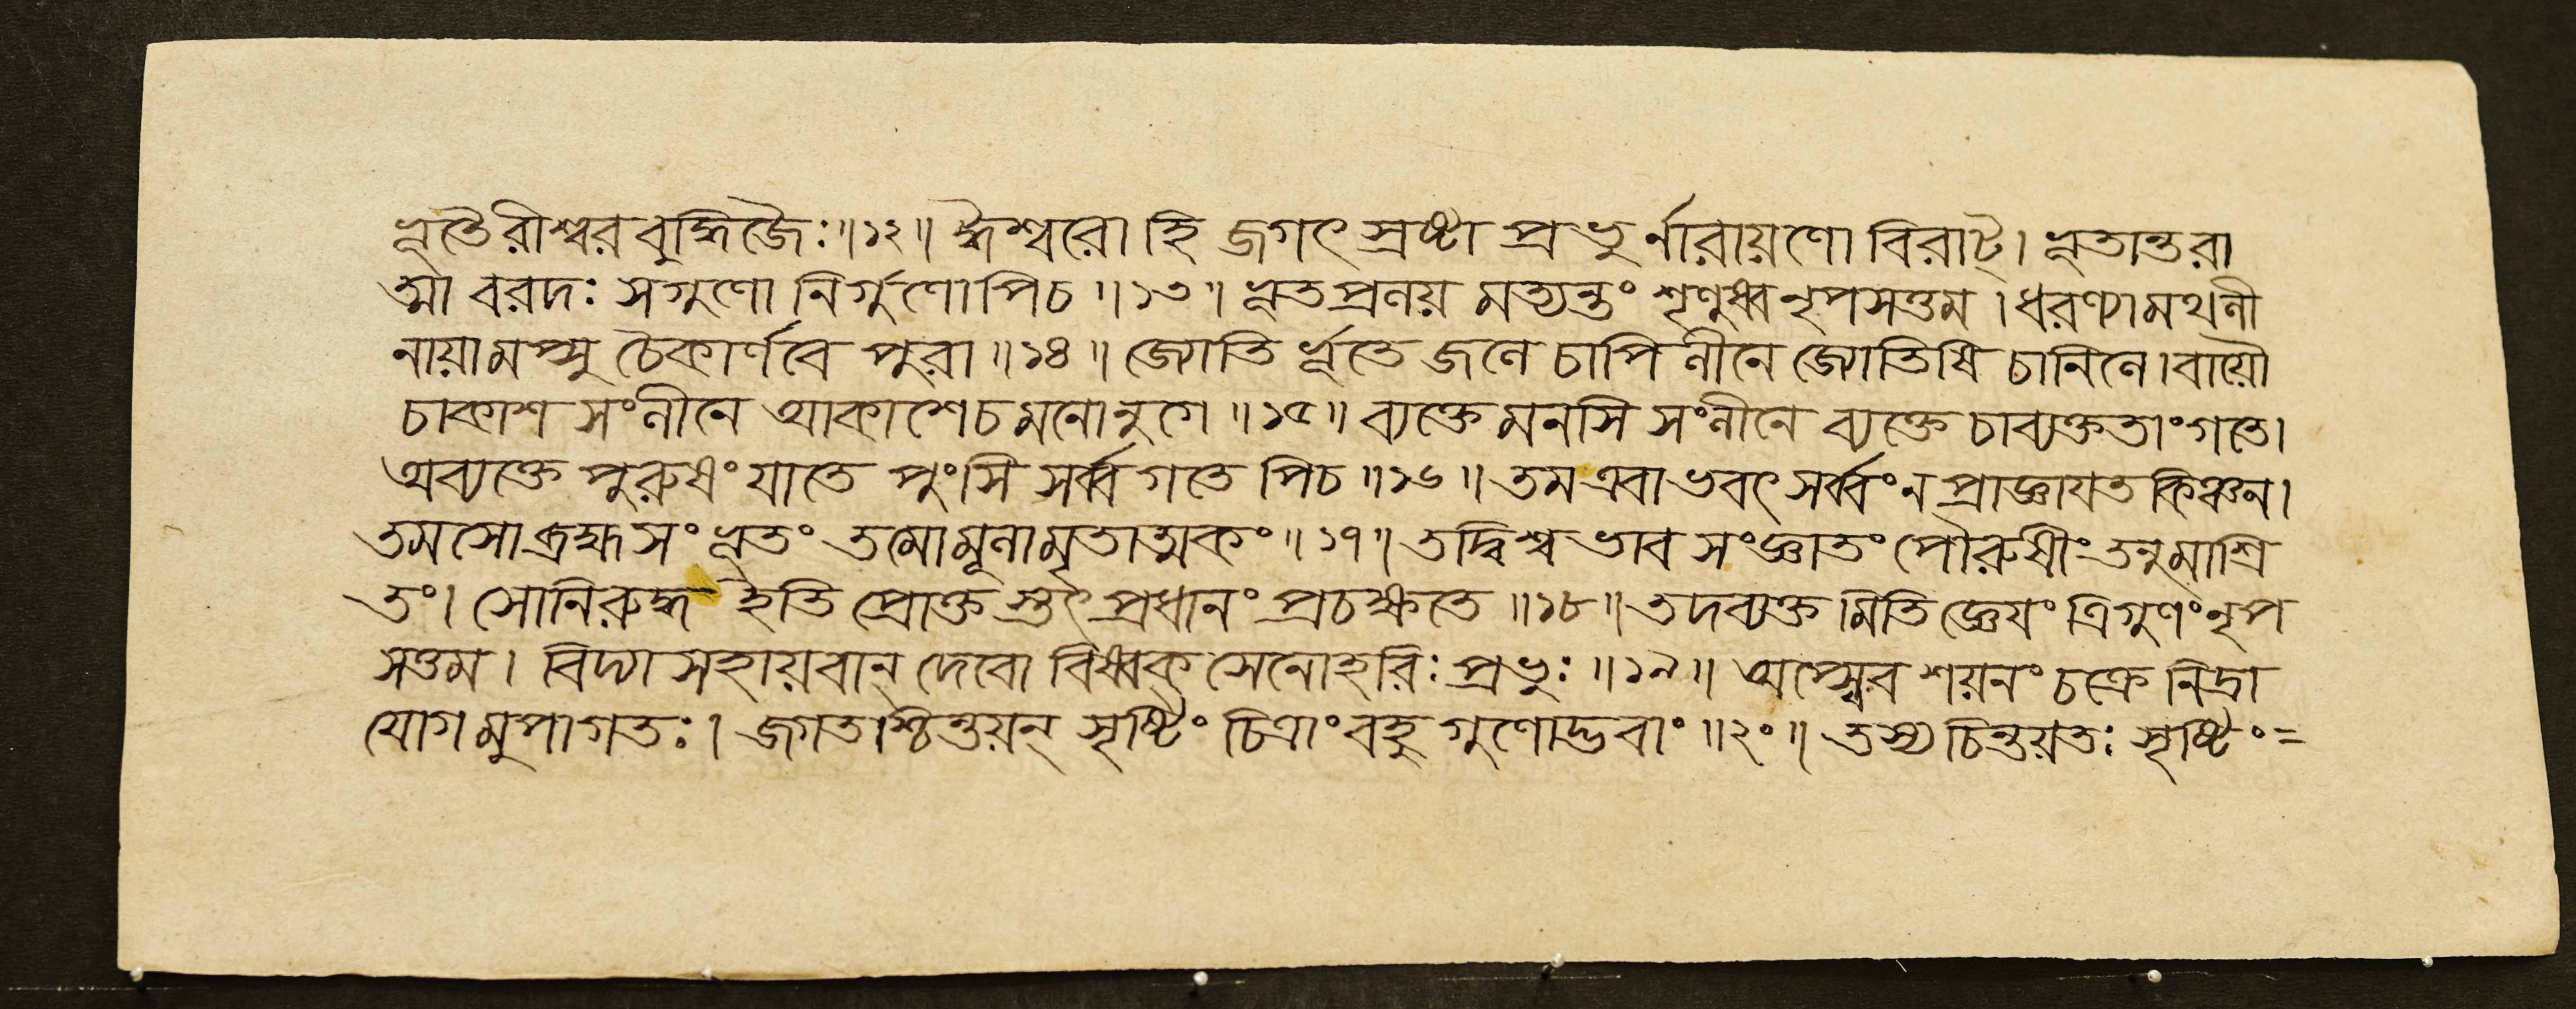 ভূতৈরীশ্বরবুদ্ধিজৈঃ॥১২॥ ঈশ্বরো হি জগৎ স্রষ্টা প্রভুর্নারায়ণো বিরাট্। ভূতান্তরা
ত্মা বরদঃ সগুণো নির্গুণোপিচ॥১৩॥ ভূতপ্রলয় মত্যন্তং শৃণুধ্ব নৃপসত্তম।ধরণ্যামথলী
নায়ামপ্সু চৈকার্ণবে পুরা॥১৪॥ জ্যোতির্ভূতে জলে চাপি লীনে জ্যোতিষি চানিলে।বায়ৌ
চাকাশ সংলীনে আকাশেচমনোনুগে॥১৫॥ ব্যক্তে মনসি সংলীনে ব্যক্তে চাব্যক্ততাংগতে।
অব্যক্তে পুরুষং যাতে পুংসি সর্ব্বগতে পিচ॥১৬॥ তম এবাভবৎ সর্ব্বং ন প্রাজ্ঞাযত কিঞ্চন।
তমসোব্রহ্মসংভূতং তমোমূলামৃতাত্মকং॥১৭॥ তদ্বিশ্বভাব সংজ্ঞাতং পৌরুষীং তনুমাশ্রি
তং। সোনিরুদ্ধ ইতি প্রোক্ত স্তৎ প্রধানং প্রচক্ষতে॥১৮॥ তদব্যক্ত মিতি জ্ঞেযং ত্রিগুণং নৃপ
সত্তম। বিদ্যা সহায়বান্ দেবো বিষ্বক্ সেনোহরিঃ প্রভুঃ॥১৯॥ অপ্স্বেব শয়নং চক্রে নিদ্রা
যোগমুপাগতঃ। জগতশ্চিন্তয়ন্ সৃষ্টিং চিত্রাং বহুগুণোদ্ভবাং॥২০॥ তস্য চিন্তয়তঃ সৃষ্টিং=